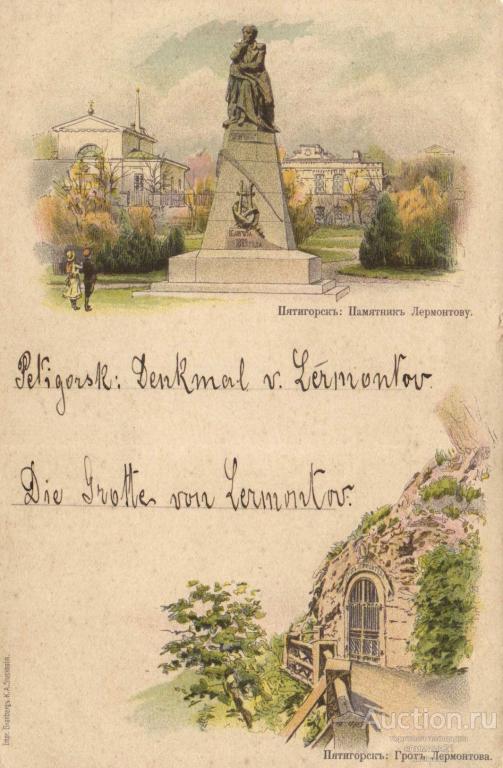 16 АВГУСТА
1889 ГОДА
Пятигорскъ: Памятникъ Лермонтову.
Petigorsk: Denkmal v. Lérmontov.
Die Grotte von Lermontov.
Пятигорскъ: Гротъ Лермонтова.
Auction.ru